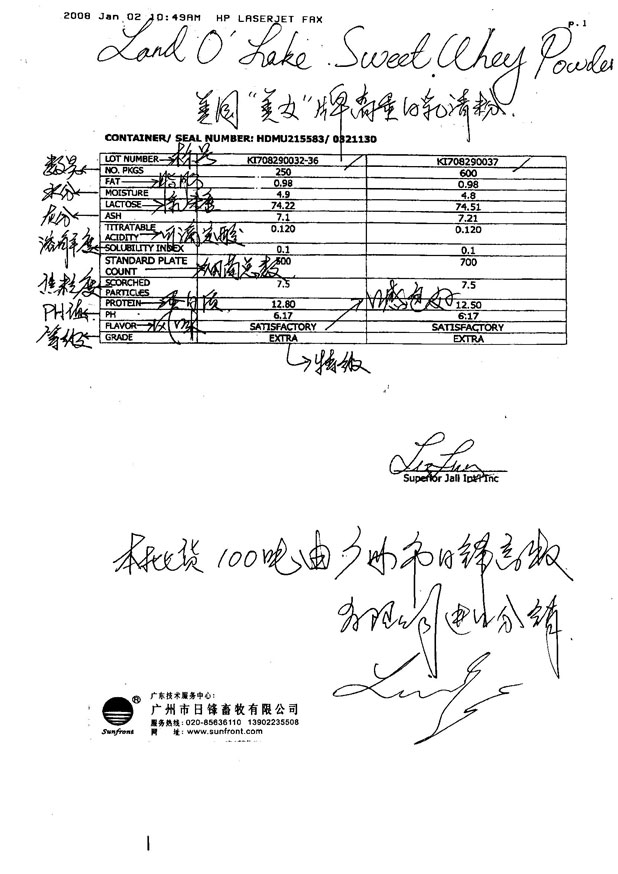 2008 Jan 02 10:49AM HP LASERJET FAX p.1
Land O' Lake Sweet Whey Powder
美国"美女"牌高蛋白乳清粉.
CONTAINER/ SEAL NUMBER: HDMU215583/ 0321130
LOT NUMBER 标号 KI708290032-36 KI708290037
数量 NO. PKGS 250 600
FAT 脂肪 0.98 0.98
水分 MOISTURE 4.9 4.8
LACTOSE 74.22 74.51
灰分 ASH 7.1 7.21
TITRATABLE ACIDITY 可滴定酸 0.120 0.120
溶解度 SOLUBILITY INDEX 0.1 0.1
STANDARD PLATE COUNT 细菌总数 500 700
焦粒度 SCORCHED PARTICLES 7.5 7.5
PROTEIN 蛋白质 12.80 12.50
PH值 PH 6.17 6.17
FLAVOR SATISFACTORY SATISFACTORY
等级 GRADE EXTRA EXTRA
特级
Superior Jali Int'l Inc
本批货100吨由广州市日锋畜牧
有限公司进口分销.
广东技术服务中心:
广州市日锋畜牧有限公司
服务热线: 020-85636110 13902235508
网 址: www.sunfront.com
Sunfront ®